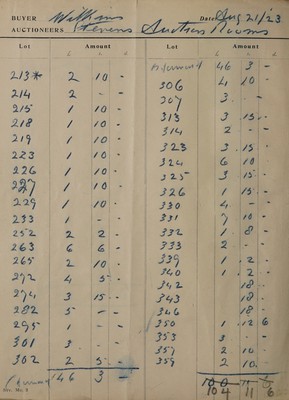 BUYER William Date Aug 21/23
AUCTIONEERS Stevens Auction Rooms
Lot Amount
213* 2 10 -
214 2 -
215 1 10 -
218 1 10 -
219 1 10 -
223 1 10 -
226 1 10 -
227 1 10 -
229 1 10 -
233 1 -
252 2 2 -
263 6 6 -
265 2 10 -
272 4 5
274 3 15 -
282 5 - -
295 1 -
301 3
302 2 5 -
46 3 -
Lot Amount
46 3 -
306 4 10 -
307 3 -
313 3 15
314 2 -
323 3 15
324 6 10
325 3 15
326 1 15
330 4 -
331 7 10
332 1 8 -
333 2
339 1 2
340 1 2
342 18
343 18
346 18
350 1 12 6
353 3
357 2 10
359 2 10
104 11 6